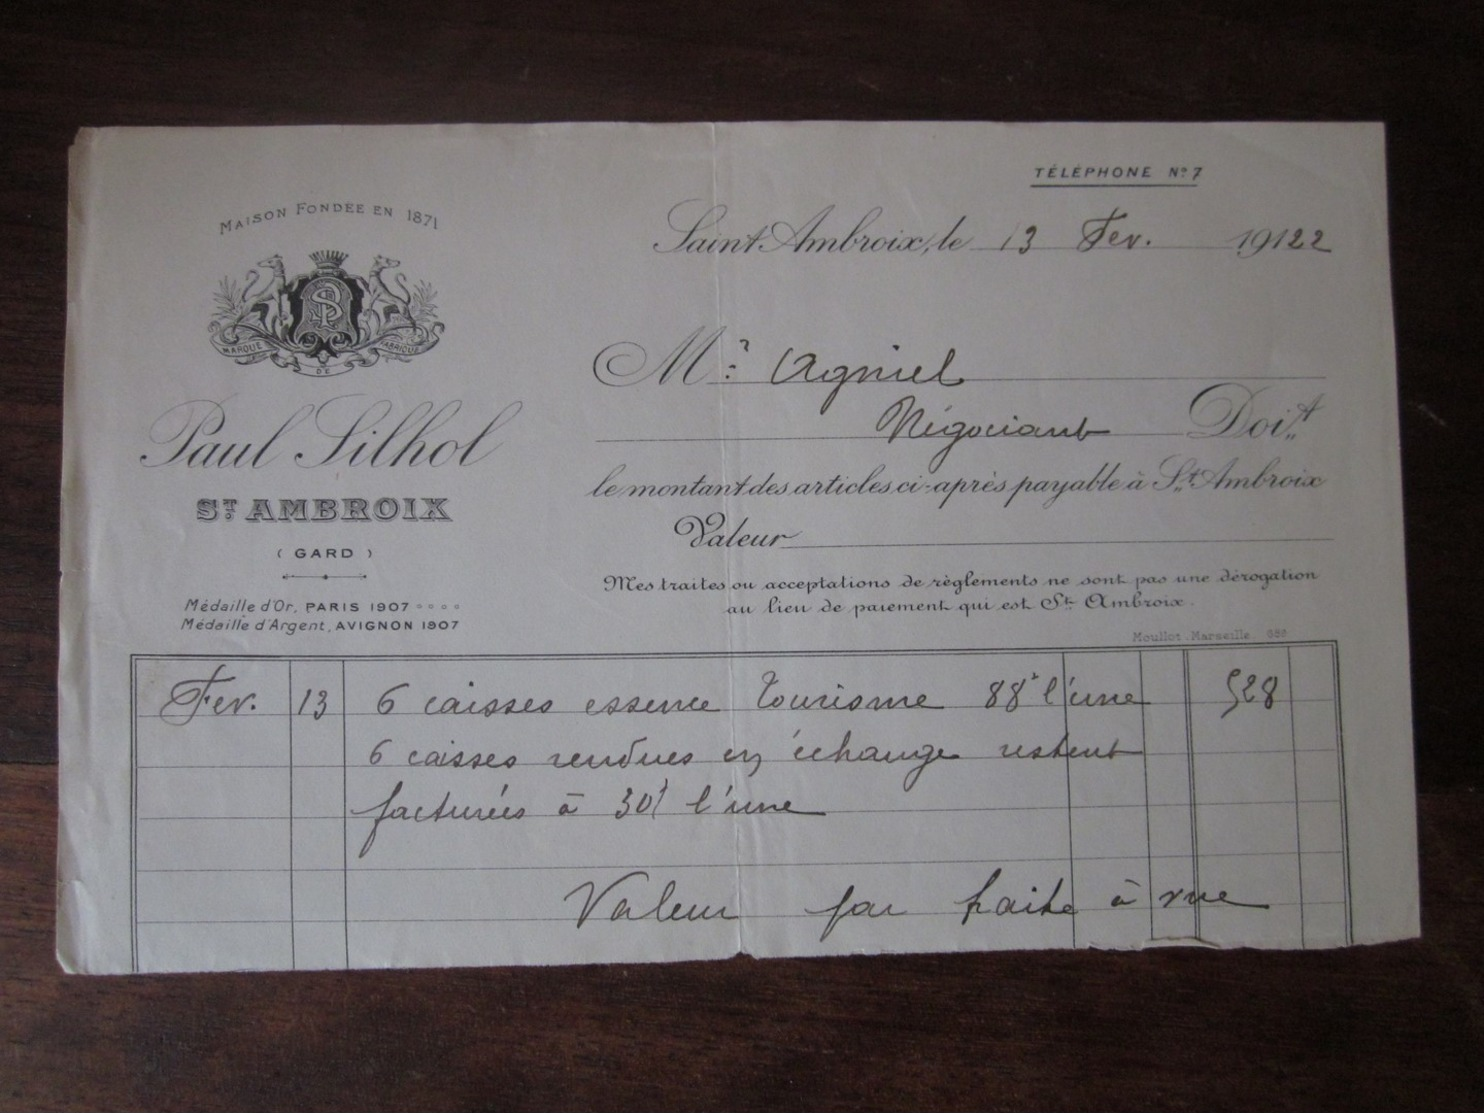 TÉLÉPHONE Nº 7
MAISON FONDÉE EN 1871
Saint-Ambroix, le 13 Fev. 19122
SP
MARQUE DE FABRIQUE
Mr: Agniel
Paul Silhol
Négociant Doit
le montant des articles ci-après payable à St. Ambroix
ST AMBROIX
Valeur
( GARD )
Mes traites ou acceptations de règlements ne sont pas une dérogation
au lieu de paiement qui est St. Ambroix.
Médaille d'Or, PARIS 1907
Médaille d'Argent, AVIGNON 1907
Moullot - Marseille
Fev. 13 6 caisses essence Tourisme 88f l'une 528
6 caisses rendues en échange restent
facturées à 30f l'une
Valeur par traite à vue